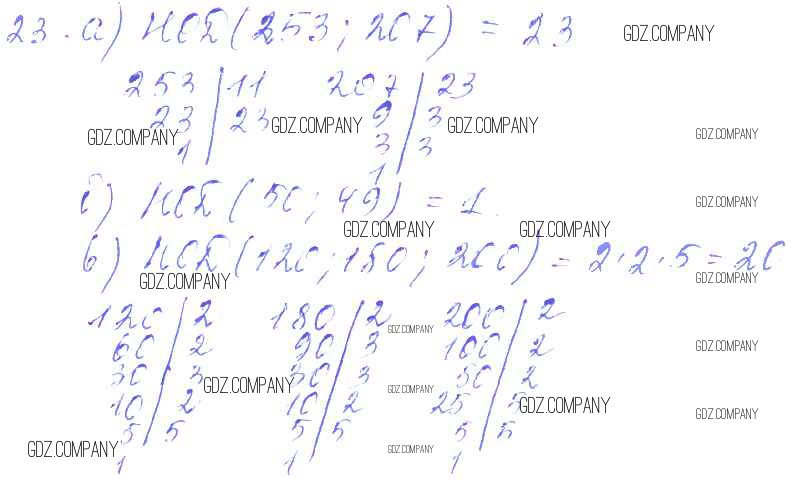 23. а) НОД(253; 207) = 23
GDZ.COMPANY
253 | 11    207 | 23
23 | 23    9 | 3
GDZ.COMPANY GDZ.COMPANY GDZ.COMPANY GDZ.COMPANY
1    3 | 3
1
б) НОД(50; 49) = 1.
GDZ.COMPANY
GDZ.COMPANY GDZ.COMPANY
в) НОД(120; 180; 200) = 2·2·5 = 20
GDZ.COMPANY GDZ.COMPANY
120 | 2    180 | 2    200 | 2
GDZ.COMPANY
60 | 2    90 | 3    100 | 2
GDZ.COMPANY
30 | 3    30 | 3    50 | 2
GDZ.COMPANY GDZ.COMPANY
10 | 2    10 | 2    25 | 5
GDZ.COMPANY GDZ.COMPANY
5 | 5    5 | 5    5 | 5
GDZ.COMPANY GDZ.COMPANY
1    1    1